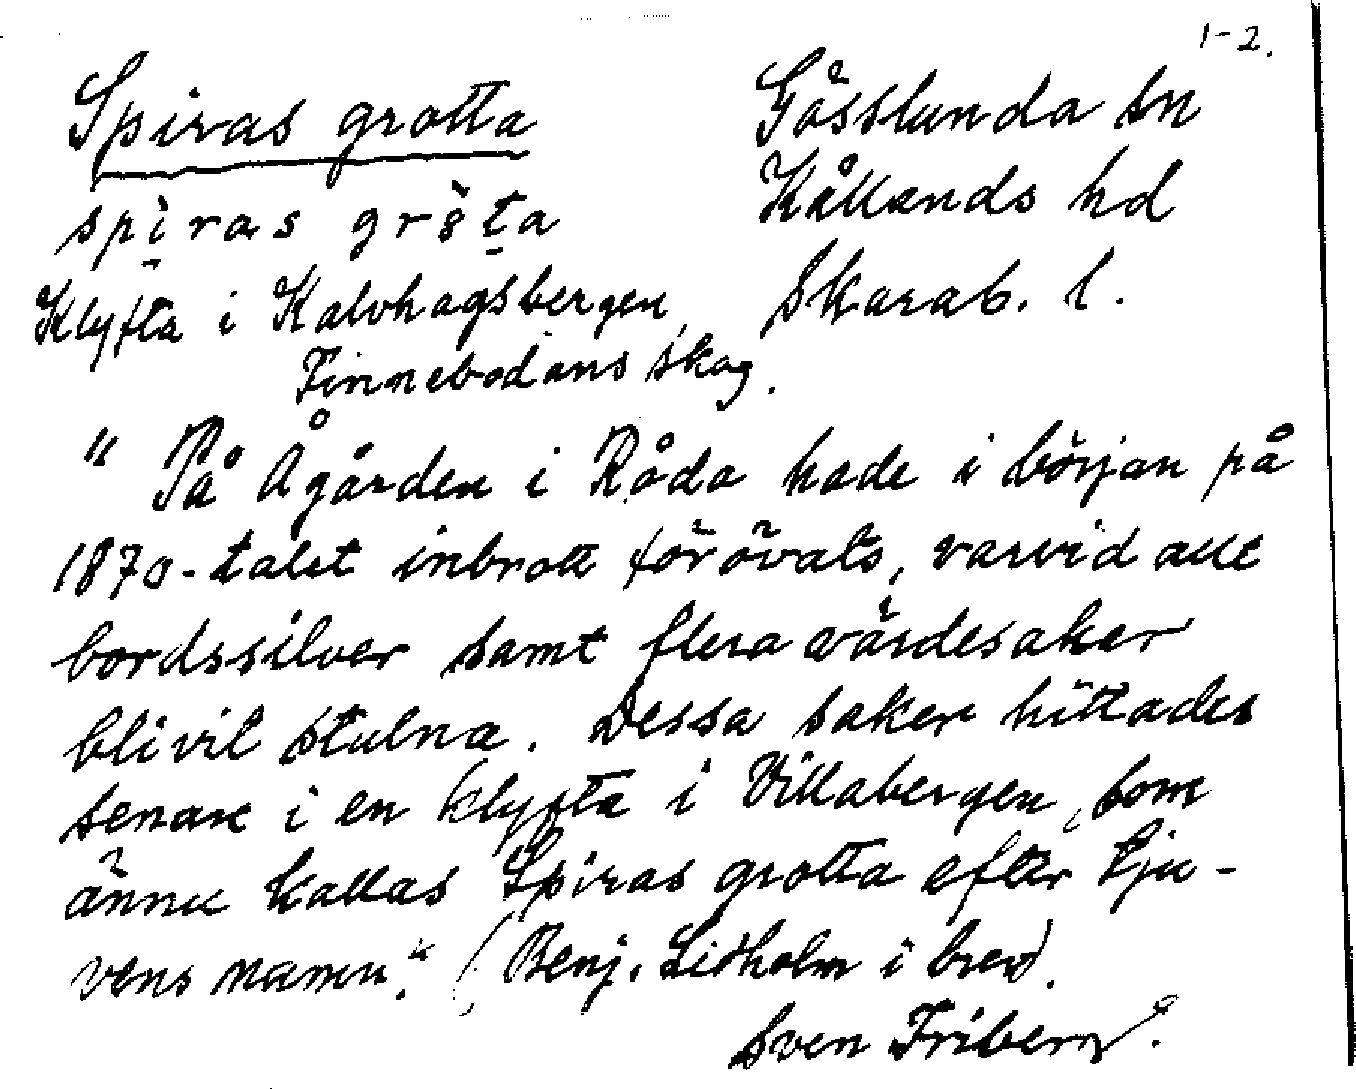 1-2.
Spiras grotta
Gösslunda sn
spiras gröta
Kållands hd
Klyfta i Kalvhagsbergen,
Skarab. l.
Finnebodans skog.
"På Ågården i Råda hade i början på
1870-talet inbrott förövats, varvid allt
bordssilver samt flera värdesaker
blivit stulna. Dessa saker hittades
senare i en klyfta i Villabergen, som
ännu kallas Spiras grotta efter tju-
vens namn." (Benj. Lidholm i brev).
Sven Friberg.